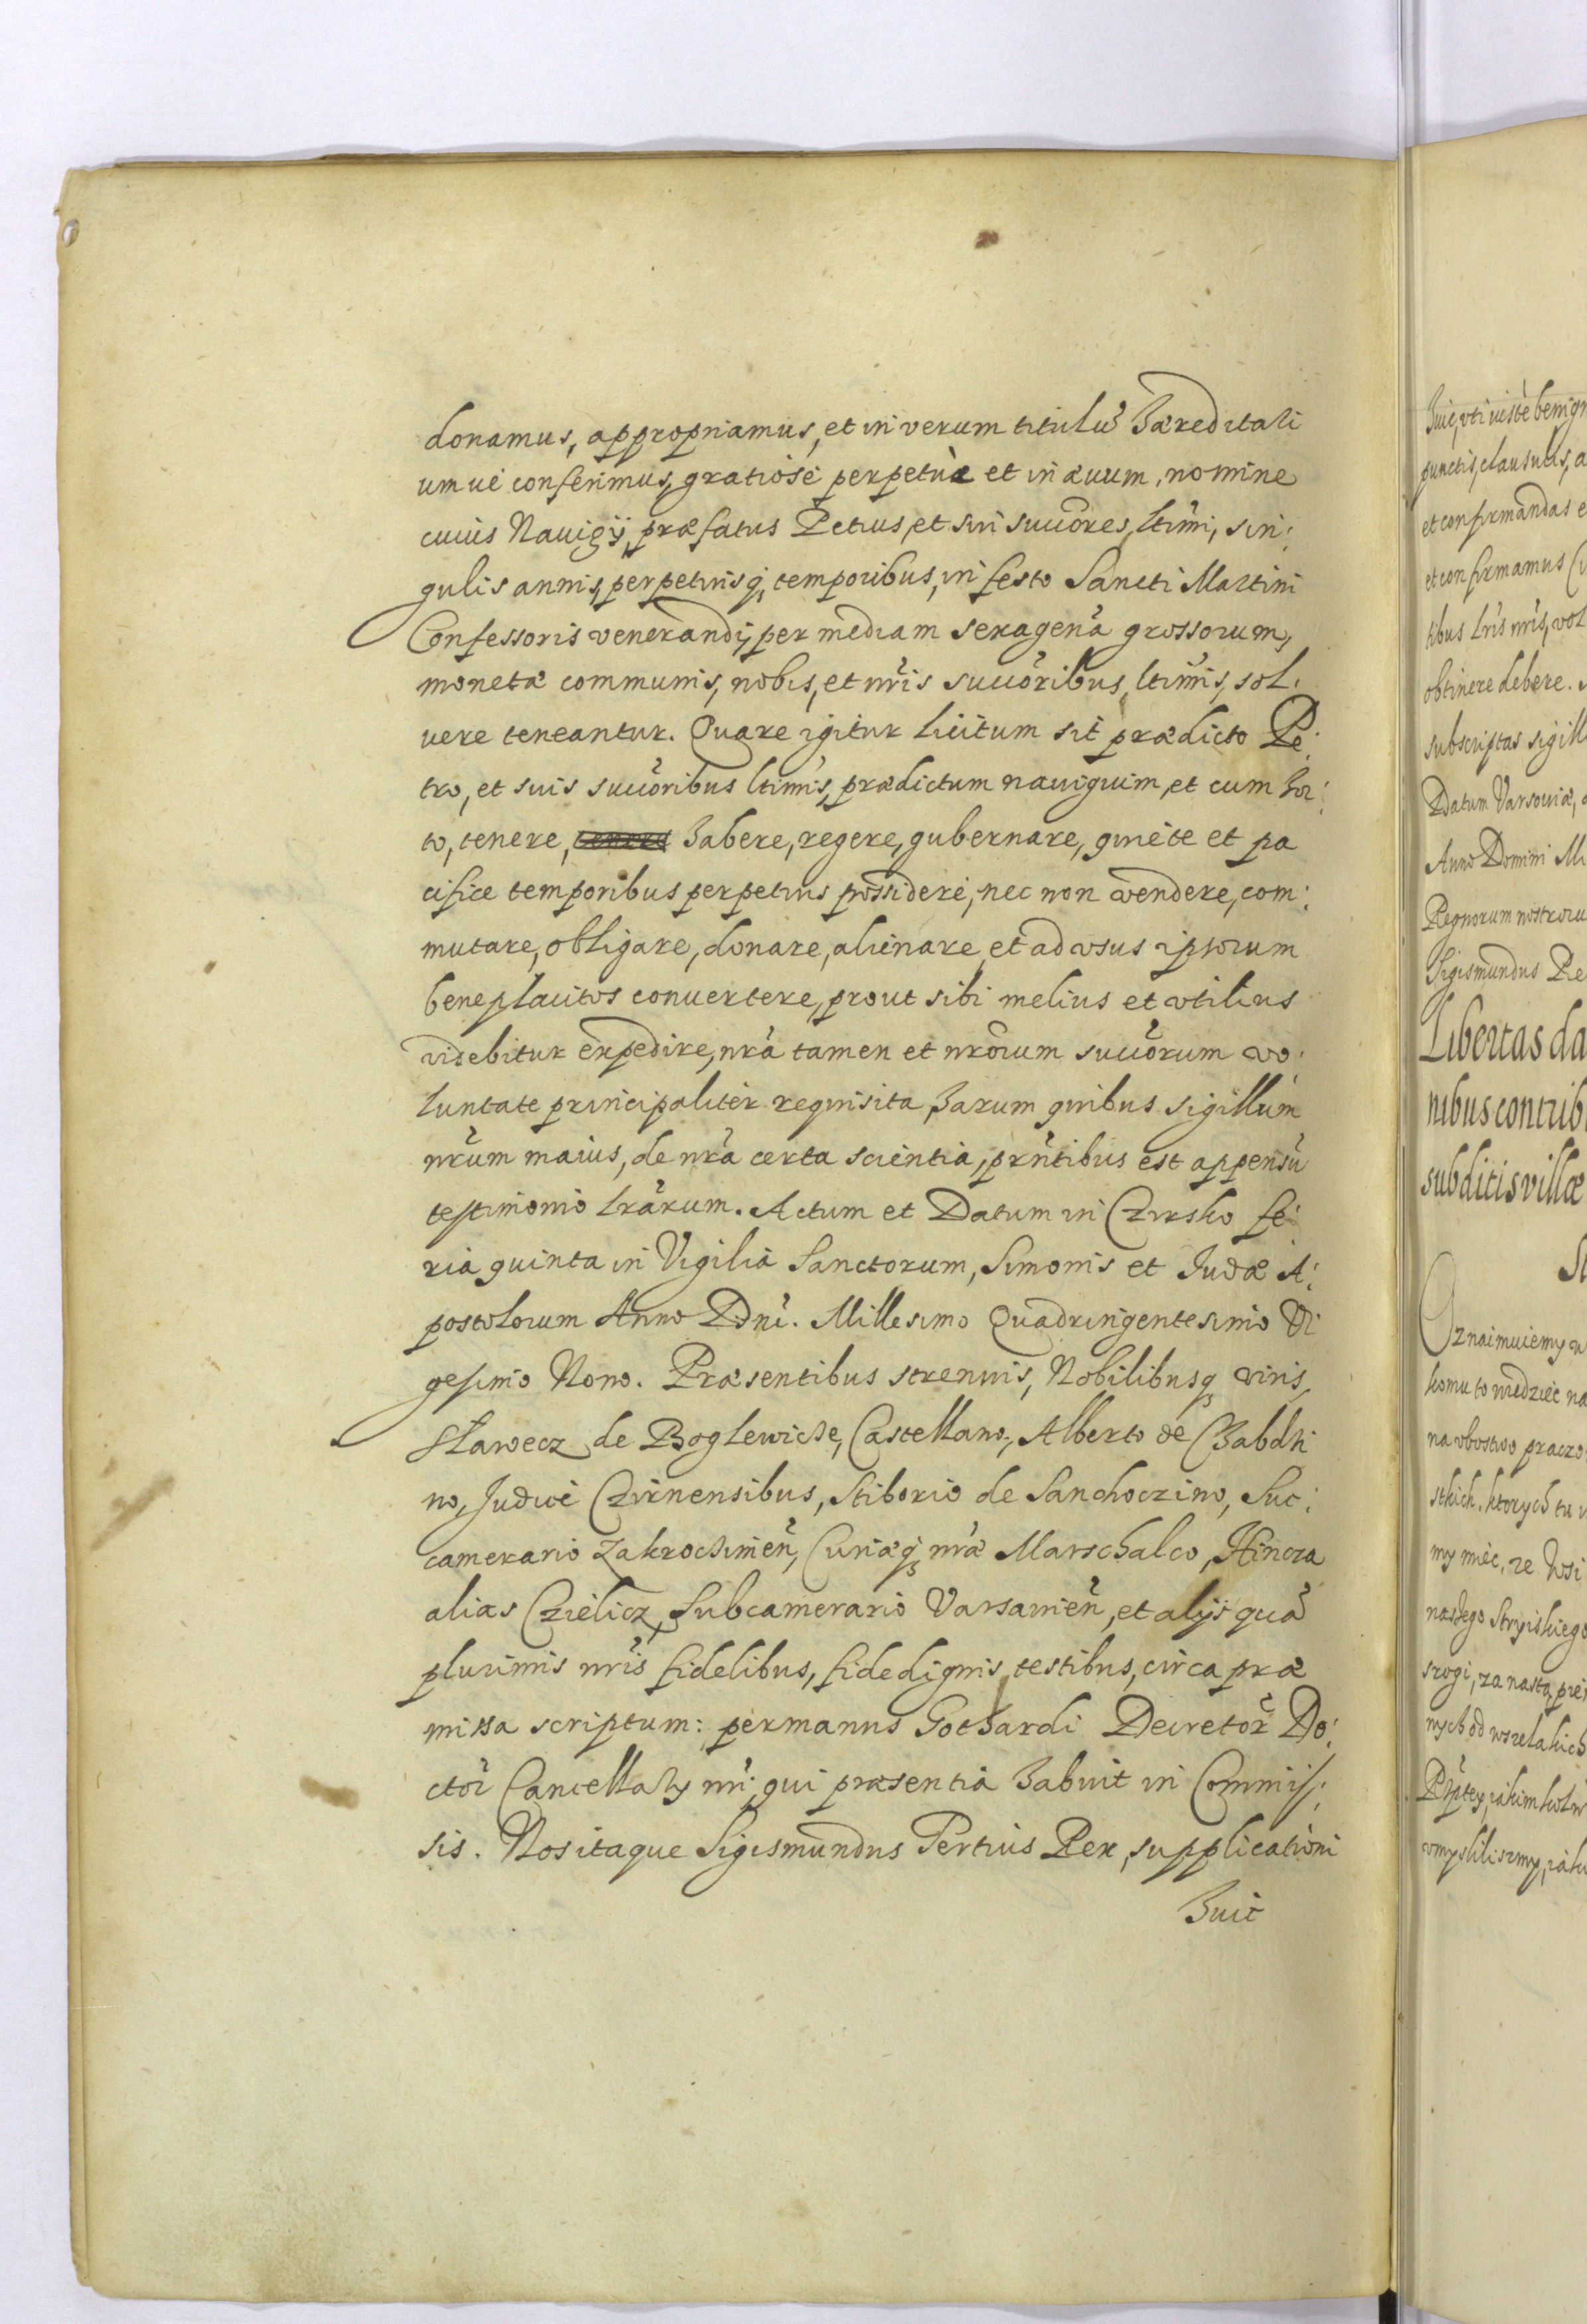 donamus, appropriamus, et in verum titulũ hæreditali
um ue conferimus, gratiose perpetuæ et in æuum, nomine
cuius Nauigij, præfatus Petrus, et sui succõres, ltĩmi, sin:
gulis annis, perpetuisq; temporibus, in festo Sancti Martini
Confessoris venerandi, per mediam sexagenã grossorum,
monetæ communis, nobis, et nr̃is succõribus, ltĩmis, sol:
uere teneantur. Quare igitur licitum sit prædicto Pe:
tro, et suis succõribus ltĩmis, prædictum nauiguim, et cum hor:
to, tenere, habere, regere, gubernare, quiete et pa
cifice temporibus perpetuis possidere, nec non vendere, com:
mutare, obligare, donare, alienare, et ad vsus ipsorum
beneplacitos conuertere, prout sibi melius et vtilius
videbitur expedire, nr̃a tamen et nrõrum succõrum vo:
luntate principaliter requisita, harum quibus sigillum
nr̃um maius, de nr̃a certa scientia, prñtibus est appensũ
testimonio lrãrum. Actum et Datum in Czirsko fe:
ria quinta in Vigilia Sanctorum, Simonis et Judæ A:
postolorum Anno Dñi. Millesimo Quadringentesimo Vi
gesimo Nono. Præsentibus strenuis, Nobilibusq; viris,
Sławecz de Boglewicze, Castellano, Alberto de Chabdzi
no, Judice Czirnensibus, Stiborio de Sanchoczino, Suc:
camerario Zakrocimeñ, Curiæq; nr̃æ Marschalco, Hincza
alias Czielicz, Subcamerario Varsauieñ, et alijs quã
plurimis nr̃is fidelibus, fide dignis, testibus, circa præ
missa scriptum: per manus Gothardi Decretor̃ Do:
ctor̃ Cancellarij nr̃i, qui præsentia habuit in Commis:
sis. Nos itaque Sigismundus Tertius Rex, supplicationi
huic
Huic, vti iuste benign
punctis, clausulis, a
et confirmandas e
et confirmamus
tibus lr̃is nr̃is, vol
obtinere debere.
subscriptas sigill
Datum Varsouiæ,
Anno Domini Mi
Regnorum nostroru
Sigismundus Re
Libertas da
nibus contrib
subditis villæ
Oznaimuiemy
komu to wiedziec na
na vbostwo praczo
stkich, ktorych tu
my miec, ze Wsi
naszego Stryiskiego
srogi, za nastą
nych od wszelakich
vmyslilismy, iako